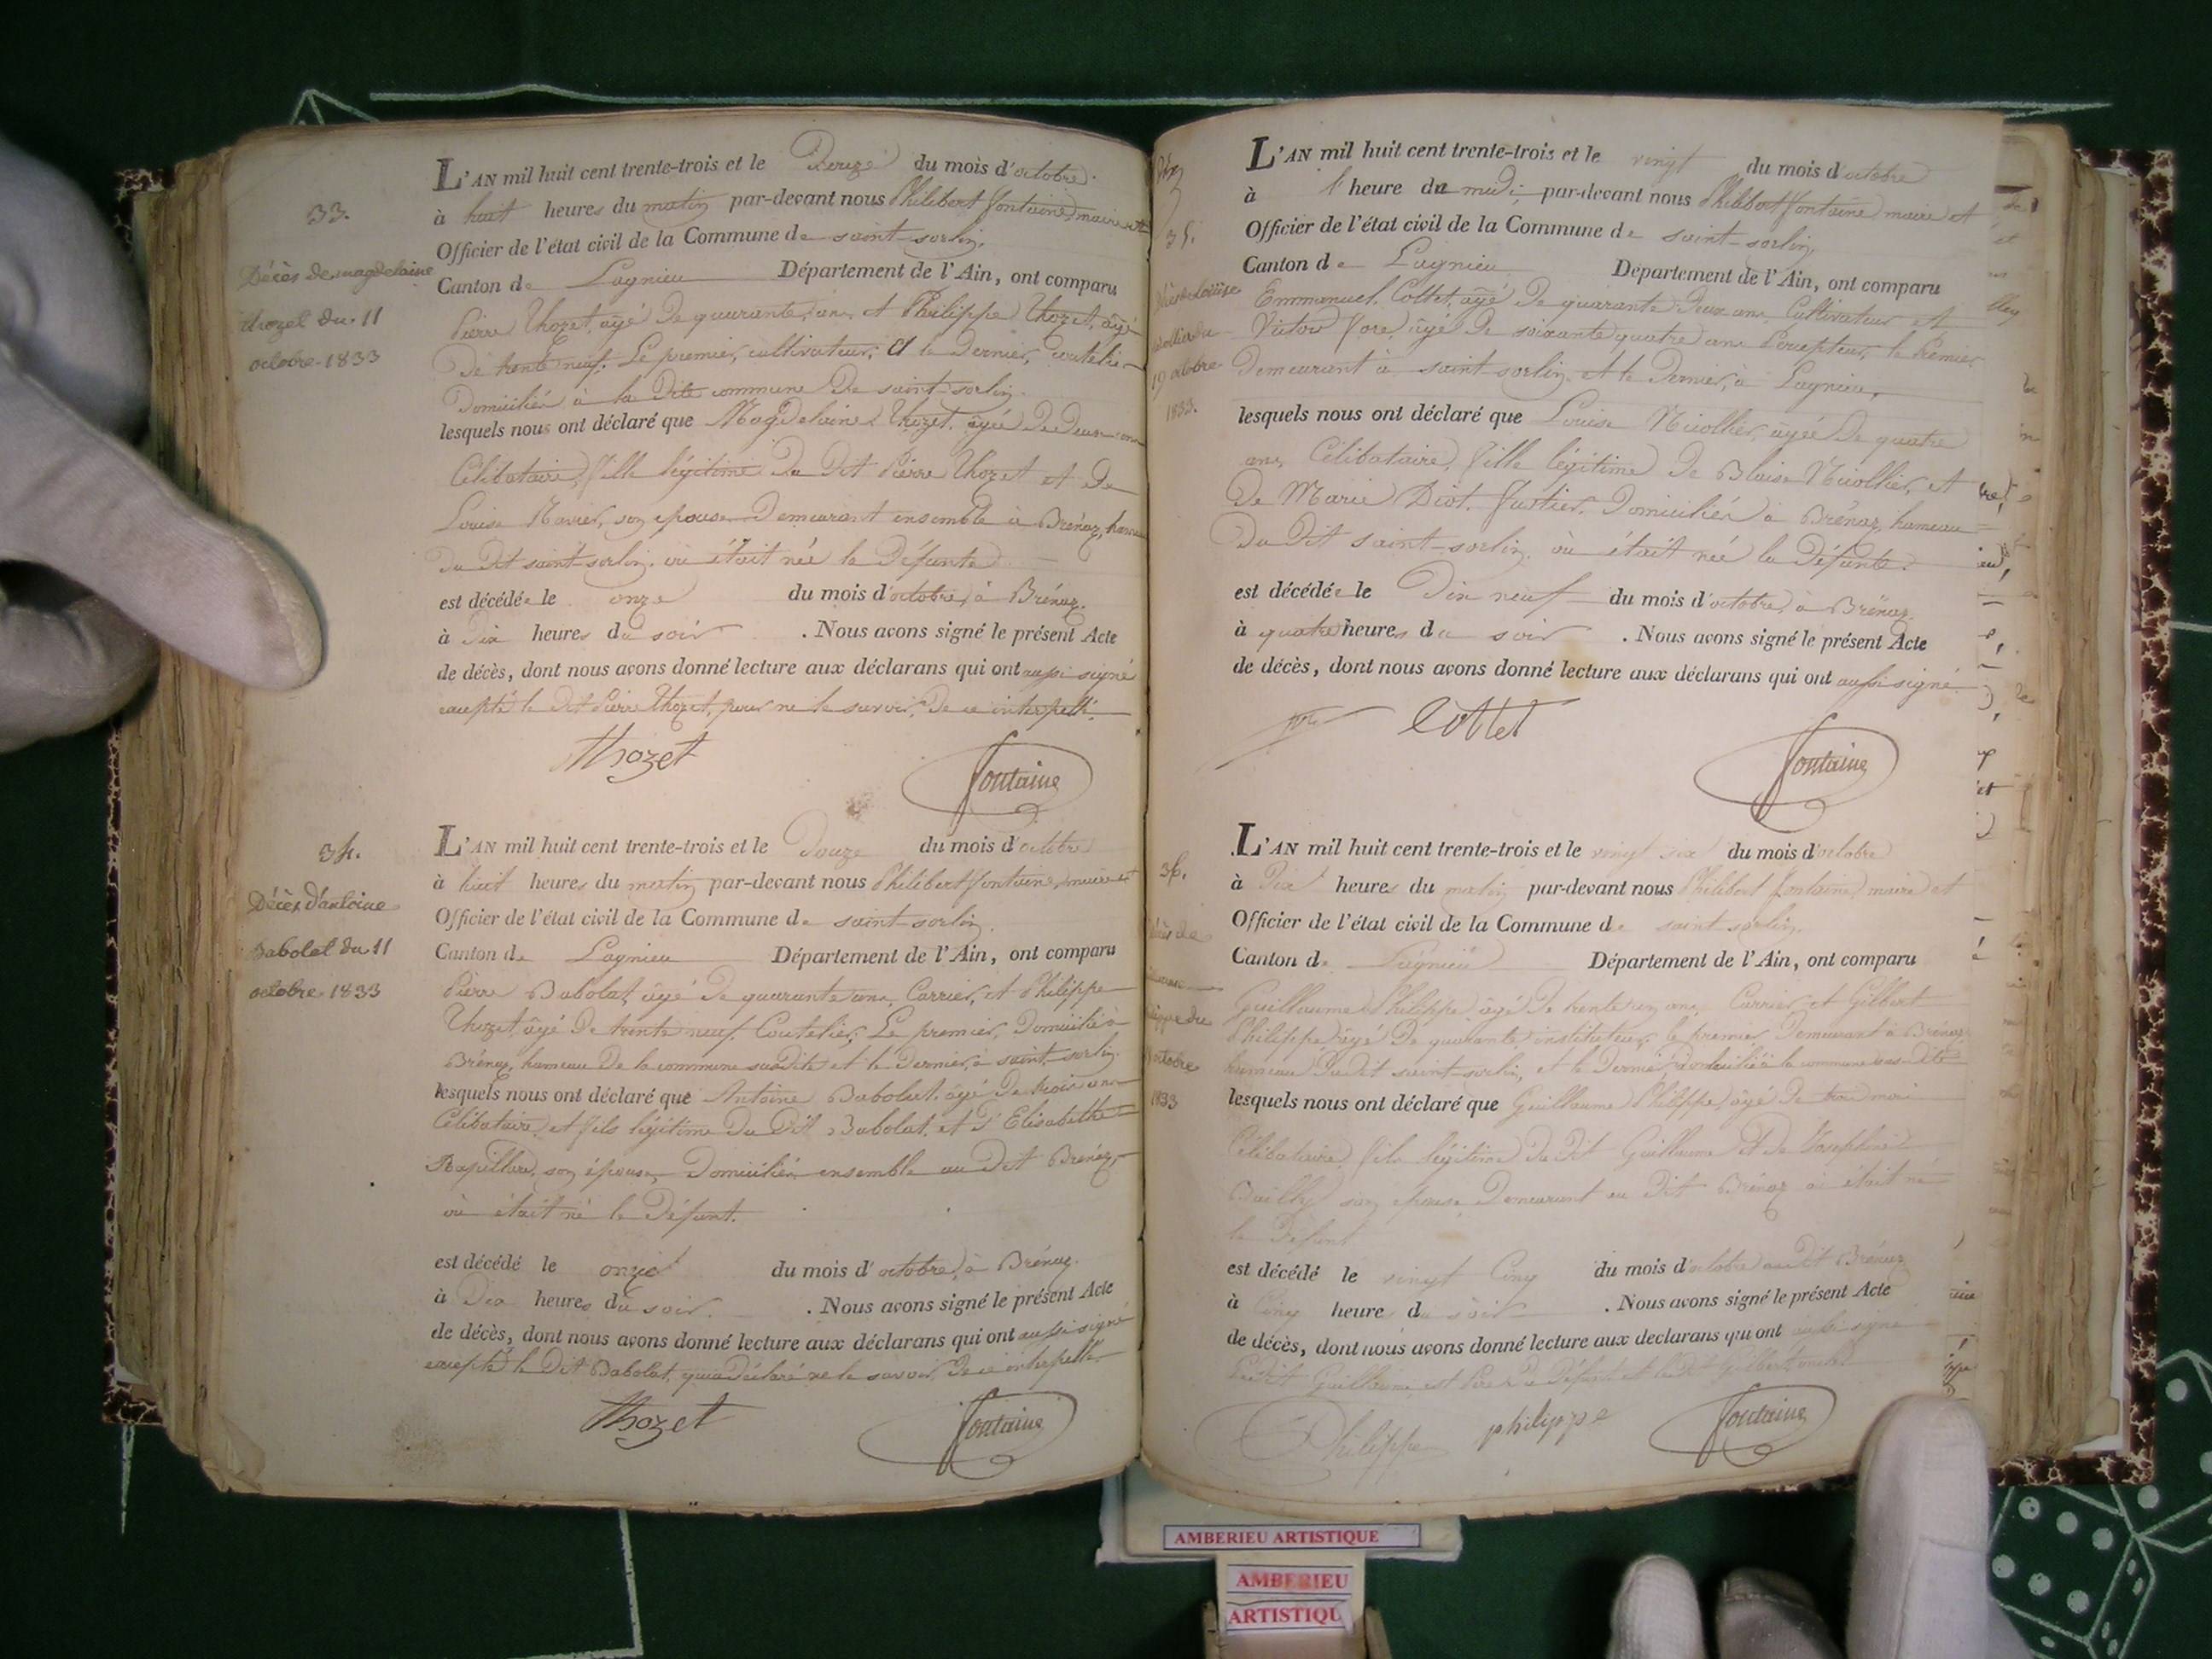 33.
Décès de magdelaine
thozet du 11
octobre 1833
L'AN mil huit cent trente-trois et le Douze du mois d'octobre
à huit heures du matin par-devant nous Philibert fontaine, maire et
Officier de l'état civil de la Commune de saint-sorlin,
Canton de Lagnieu Département de l'Ain, ont comparu
Pierre Thozet, âgé De quarante ans, et Philippe Thozet, âgé
De trente neuf, Le premier, cultivateur, et le Dernier, coutelier
Domiciliés à la Dite commune De saint-sorlin.
lesquels nous ont déclaré que Magdelaine Thozet, âgée De Deux ans
Célibataire, fille légitime Du Dit Pierre Thozet et De
Louise Ravier, son épouse Demeurant ensemble à Brénaz, hameau
Du Dit saint-sorlin, où était née la Défunte.
est décédée le onze du mois d'octobre, à Brénaz.
à Dix heures du soir. Nous avons signé le présent Acte
de décès, dont nous avons donné lecture aux déclarans qui ont aussi signé
excepté le Dit Pierre Thozet, pour ne le savoir, De ce interpellé.
Thozet
fontaine
34.
Décès d'antoine
Babolat du 11
octobre 1833
L'AN mil huit cent trente-trois et le Douze du mois d'octobre
à huit heures du matin par-devant nous Philibert fontaine, maire et
Officier de l'état civil de la Commune de saint-sorlin,
Canton de Lagnieu Département de l'Ain, ont comparu
Pierre Babolat, âgé De quarante ans, Carrier, et Philippe
Thozet, âgé De trente neuf, Coutelier, Le premier, Domicilié à
Brénaz, hameau de la commune susdite et le Dernier, à saint-sorlin.
lesquels nous ont déclaré que Antoine Babolat, âgé De trois ans
Célibataire, et fils légitime Du Dit Babolat, et d'Elisabeth
son épouse, Domiciliés ensemble au Dit Brénaz,
où était né le Défunt.
est décédé le onze du mois d'octobre, à Brénaz.
à Dix heures du soir. Nous avons signé le présent Acte
de décès, dont nous avons donné lecture aux déclarans qui ont aussi signé
excepté le Dit Babolat, qui a déclaré ne le savoir, De ce interpellé.
Thozet
fontaine
35.
19 octobre
1833.
L'AN mil huit cent trente-trois et le vingt du mois d'octobre
à 1 heure du midi, par-devant nous Philibert fontaine maire et
Officier de l'état civil de la Commune de saint-sorlin,
Canton de Lagnieu Département de l'Ain, ont comparu
Emmanuel Cottet, âgé De quarante Deux ans, Cultivateur et
Victor fore, âgé De soixante quatre ans Percepteur, le Premier
Demeurant à saint-sorlin, et le Dernier, à Lagnieu,
lesquels nous ont déclaré que Louise Nicollier, âgée De quatre
ans, Célibataire, fille légitime De Blaise Nicollier, et
De Marie Diot. Justier, Domiciliés à Brénaz, hameau
Du Dit saint-sorlin, où était née la Défunte.
est décédée le Dix neuf du mois d'octobre, à Brénaz.
à quatre heures du soir. Nous avons signé le présent Acte
de décès, dont nous avons donné lecture aux déclarans qui ont aussi signé.
Cottet
fontaine
36.
octobre
1833
L'AN mil huit cent trente-trois et le vingt six du mois d'octobre
à Dix heures du matin par-devant nous Philibert fontaine, maire et
Officier de l'état civil de la Commune de saint-sorlin,
Canton de Lagnieu Département de l'Ain, ont comparu
Guillaume Philippe, âgé De trente ans, Carrier, et Gilbert
Philippe, âgé De quarante instituteur, le premier Demeurant à Brénaz
hameau Du dit saint-sorlin, et le Dernier, Domicilié à la commune sus-dite
lesquels nous ont déclaré que Guillaume Philippe, âgé De trois mois
Célibataire, fils légitime Du Dit Guillaume et de Josephine
Bailly son épouse Demeurant au Dit Brénaz où était né
le Défunt
est décédé le vingt Cinq du mois d'octobre au Dit Brénaz
à Cinq heures du soir. Nous avons signé le présent Acte
de décès, dont nous avons donné lecture aux déclarans qui ont aussi signé
Le dit Guillaume est Père Du Défunt et le dit Gilbert oncle
Philippe
philippe
fontaine
AMBERIEU ARTISTIQUE
AMBERIEU
ARTISTIQU